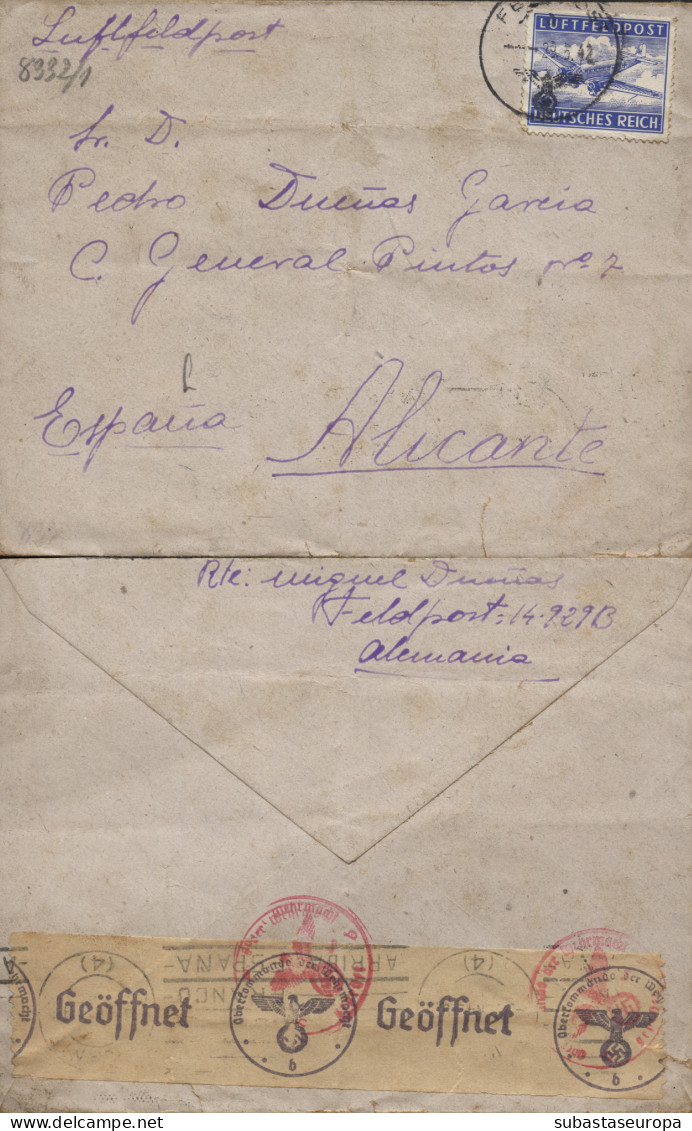 Luftfeldpost
8332/1
LUFTFELDPOST
DEUTSCHES REICH
42
Sr. D.
Pedro Dueñas García
C. General Pintos nº 7
España
Alicante
Rte: Miguel Dueñas
Feldpost: 14.929B
Alemania
(4) (4)
ARRIBA ESPAÑA
Geöffnet
Oberkommando der Wehrmacht
b
Geöffnet
Oberkommando der
b
subastaseuropa